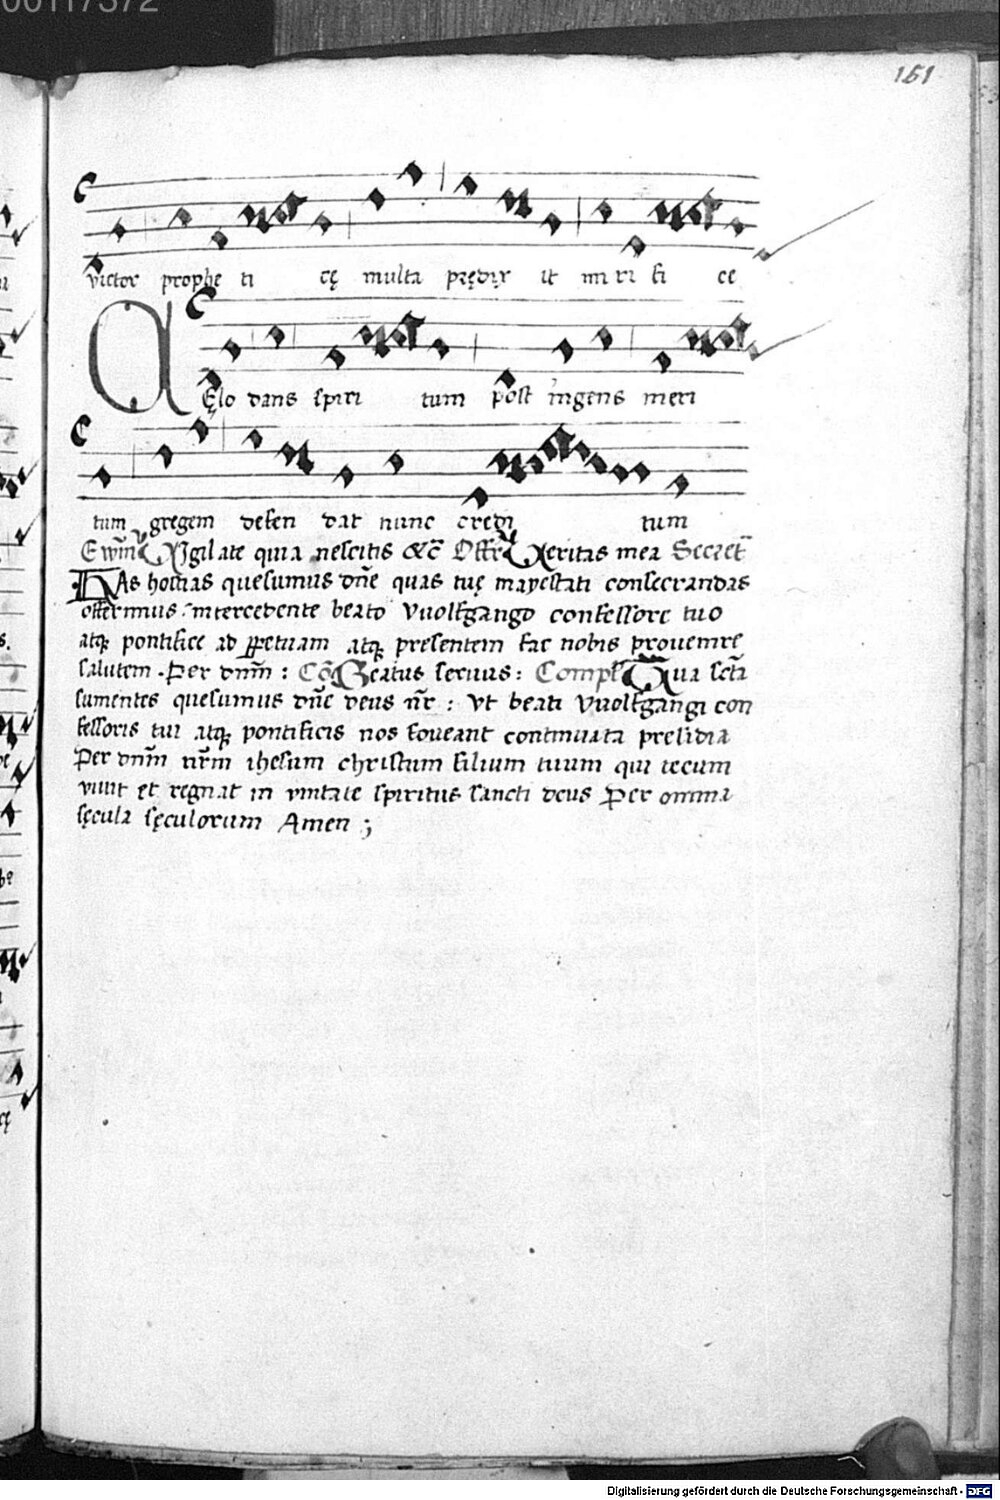 00117372
151
victor prophe ti cę multa prędix it mi ri fi ce
Cęlo dans spiri tum post ingens meri
tum gregem defen dat nunc credi tum
Ewm̄ Vigilate quia nescitis &c̄ Offr̄ Veritas mea Secret̄
Has hostias quesumus dn̄e quas tuę mayestati consecrandas
offerimus : intercedente beato Vuolfgango confessore tuo
atqꝫ pontifice ad ꝑpetuam atqꝫ presentem fac nobis prouenire
salutem . Per dnm̄ : Cō Beatus seruus : Compl̄ Qua sctā
sumentes quesumus dn̄e deus nr̄ : vt beati Vuolfgangi con
fessoris tui atqꝫ pontificis nos foueant continuata presidia
Per dnm̄ nrm̄ ihesum christum filium tuum qui tecum
viuit et regnat in vnitate spiritus sancti deus Per omnia
sęcula sęculorum Amen ;
Digitalisierung gefördert durch die Deutsche Forschungsgemeinschaft - DFG